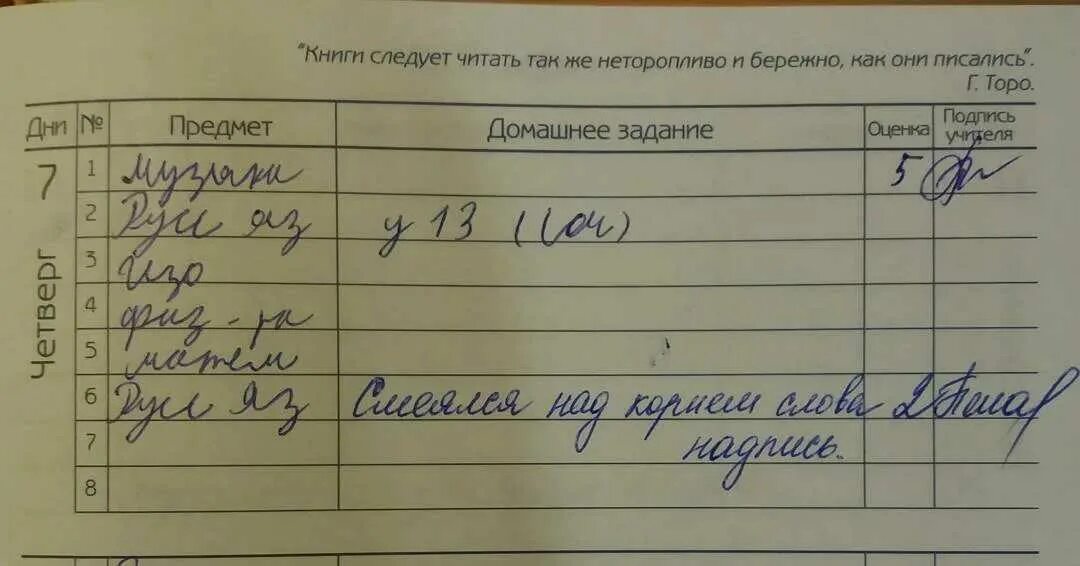 "Книги следует читать так же неторопливо и бережно, как они писались".
Г. Торо.
Дни № Предмет Домашнее задание Оценка Подпись учителя
7 Четверг
1 Музыка 5
2 Русс яз у 13
3 Изо
4 физ-ра
5 матем
6 Русс яз Смеялся над корнем слова 2
7 надпись.
8